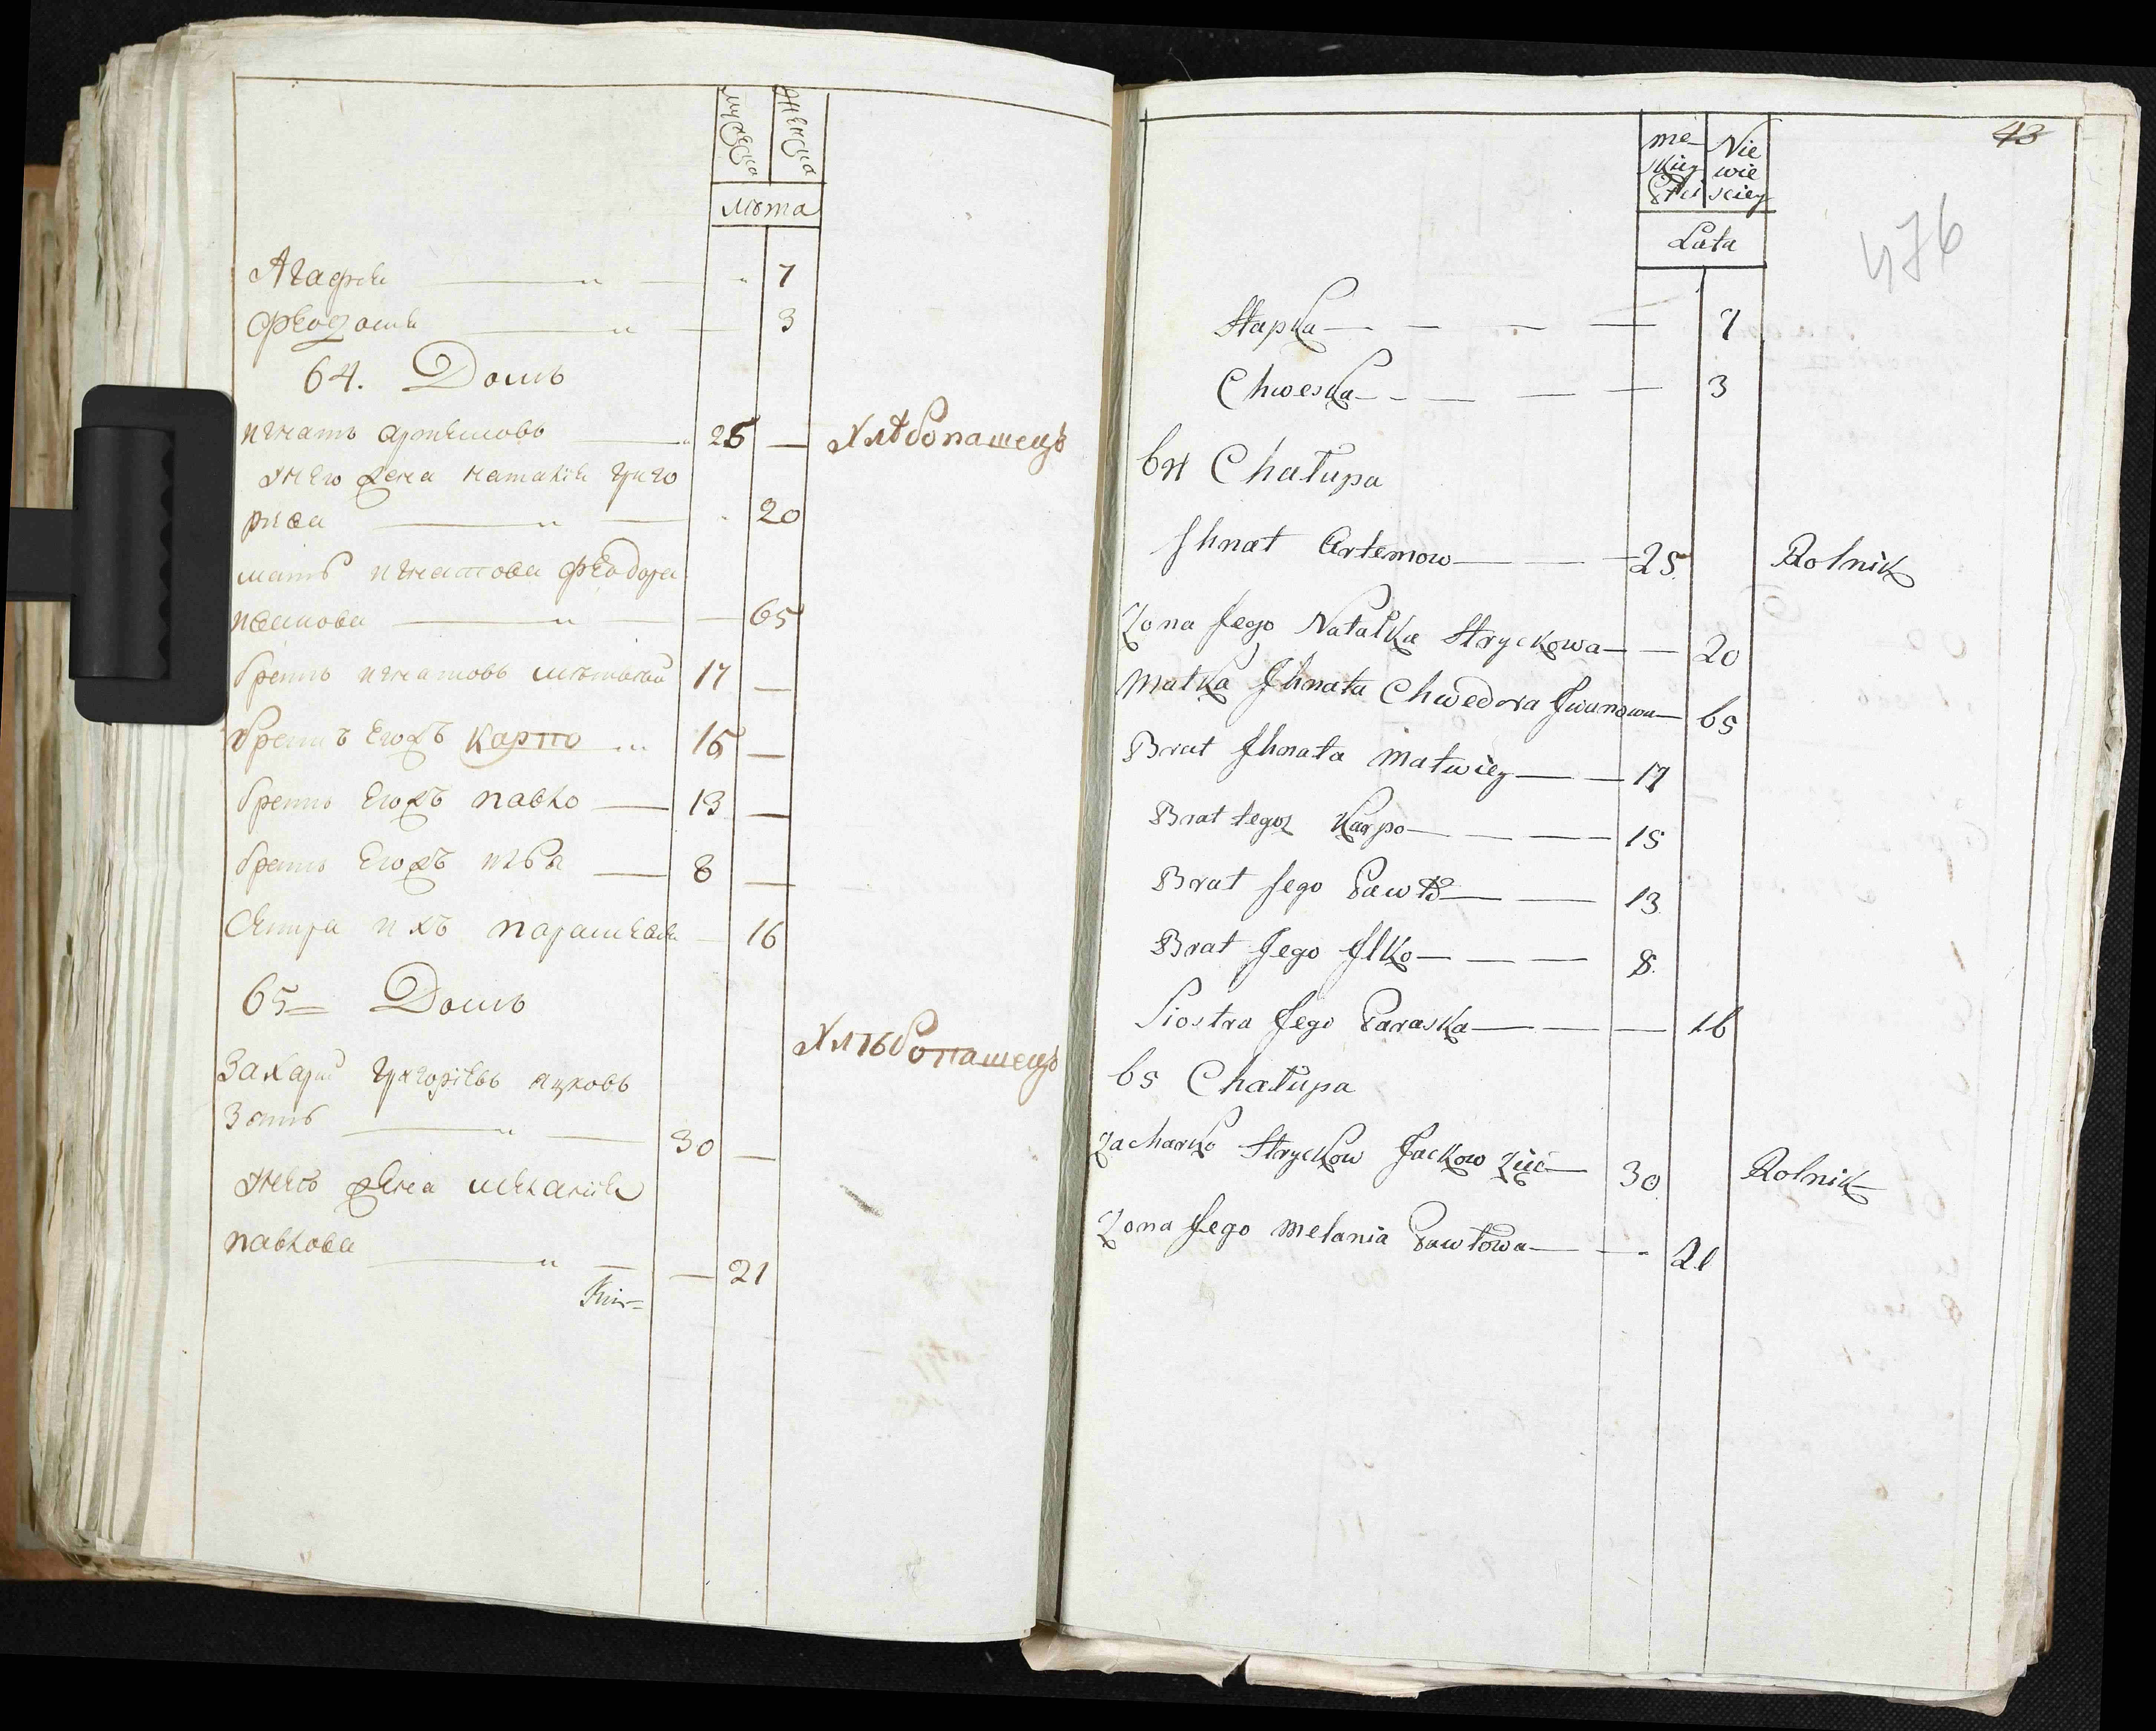 мужеска
женска
лѣта
Агафия 7
Феодосия 3
64. Домъ
игнатъ артемовъ 25 — Хлѣбопашецъ
Унего жена наталия григо
рива 20
мать игнатова феодора
иванова — 65
братъ игнатовъ матвий 17 —
братъ егожъ карпо 15 —
братъ егожъ павло 13 —
братъ егожъ илья 8 —
сестра ихъ парашкева — 16
65 = Домъ
Хлѣбопашецъ
Захарий григориевъ яцковъ
зять 30 —
Унего жена мелания
павлова — 21
43
476
mę-
skiey
Płci
Nie
wie
sciey
Lata
Hapka — — — — 7
Chweska — — — — 3
64 Chałupa
Jhnat Artemow — — 25. Rolnik
Zona Jego Natałka Hryckowa — — 20
Matka Jhnata Chwedora Jwanowa — 65
Brat Jhnata Matwiey — — 17
Brat tegoz Karpo — — — 15
Brat Jego Pawło — — 13
Brat Jego Jlko — — — 8.
Siostra Jego Paraska — — — 16
65 Chałupa
Zacharko Hryckow Jackow Zięć — 30 Rolnik
Zona Jego Melania Pawłowa — — 21